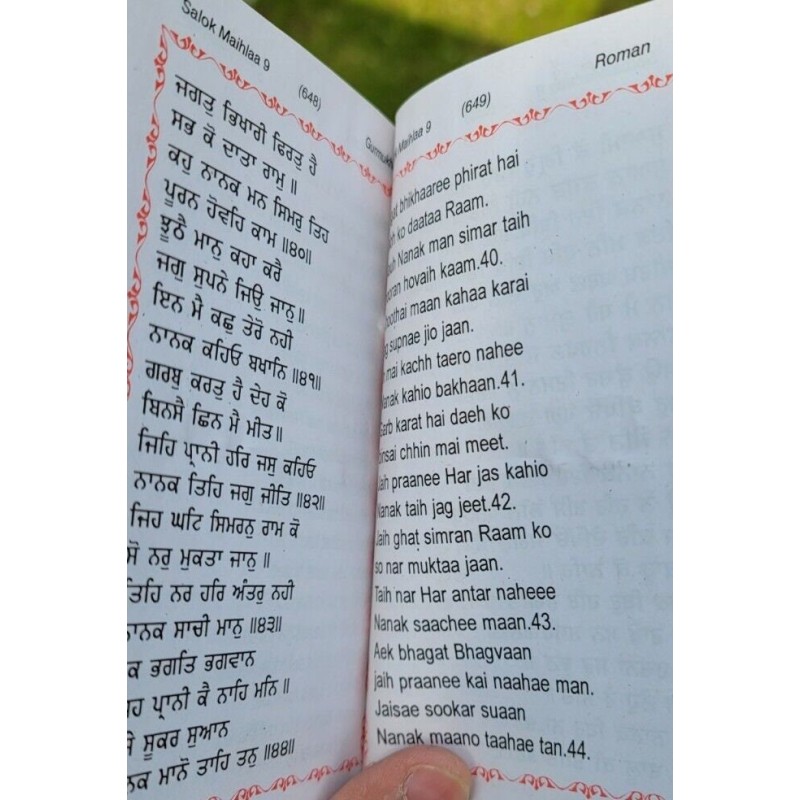 Salok Maihlaa 9
(648)
ਜਗਤੁ ਭਿਖਾਰੀ ਫਿਰਤੁ ਹੈ
ਸਭ ਕੋ ਦਾਤਾ ਰਾਮੁ ॥
ਕਹੁ ਨਾਨਕ ਮਨ ਸਿਮਰੁ ਤਿਹ
ਪੂਰਨ ਹੋਵਹਿ ਕਾਮ ॥੪੦॥
ਝੂਠੈ ਮਾਨੁ ਕਹਾ ਕਰੈ
ਜਗੁ ਸੁਪਨੇ ਜਿਉ ਜਾਨੁ ॥
ਇਨ ਮੈ ਕਛੁ ਤੇਰੋ ਨਹੀ
ਨਾਨਕ ਕਹਿਓ ਬਖਾਨਿ ॥੪੧॥
ਗਰਬੁ ਕਰਤੁ ਹੈ ਦੇਹ ਕੋ
ਬਿਨਸੈ ਛਿਨ ਮੈ ਮੀਤ ॥
ਜਿਹਿ ਪ੍ਰਾਨੀ ਹਰਿ ਜਸੁ ਕਹਿਓ
ਨਾਨਕ ਤਿਹਿ ਜਗੁ ਜੀਤਿ ॥੪੨॥
ਜਿਹ ਘਟਿ ਸਿਮਰਨੁ ਰਾਮ ਕੋ
ਸੋ ਨਰੁ ਮੁਕਤਾ ਜਾਨੁ ॥
ਤਿਹਿ ਨਰ ਹਰਿ ਅੰਤਰੁ ਨਹੀ
ਨਾਨਕ ਸਾਚੀ ਮਾਨੁ ॥੪੩॥
ਭਗਤਿ ਭਗਵਾਨ
ਪ੍ਰਾਨੀ ਕੈ ਨਾਹਿ ਮਨਿ ॥
ਸੂਕਰ ਸੁਆਨ
ਮਾਨੋ ਤਾਹਿ ਤਨੁ ॥੪੪॥
Maihlaa 9
(649)
Roman
bhikhaaree phirat hai
ko daataa Raam.
Nanak man simar taih
hovaih kaam.40.
maan kahaa karai
supnae jio jaan.
mai kachh taero nahee
Nanak kahio bakhaan.41.
Garb karat hai daeh ko
chhin mai meet.
Jaih praanee Har jas kahio
Nanak taih jag jeet.42.
Jaih ghaṭ simran Raam ko
so nar muktaa jaan.
Taih nar Har antar naheee
Nanak saachee maan.43.
Aek bhagat Bhagvaan
jaih praanee kai naahae man.
Jaisae sookar suaan
Nanak maano taahae tan.44.